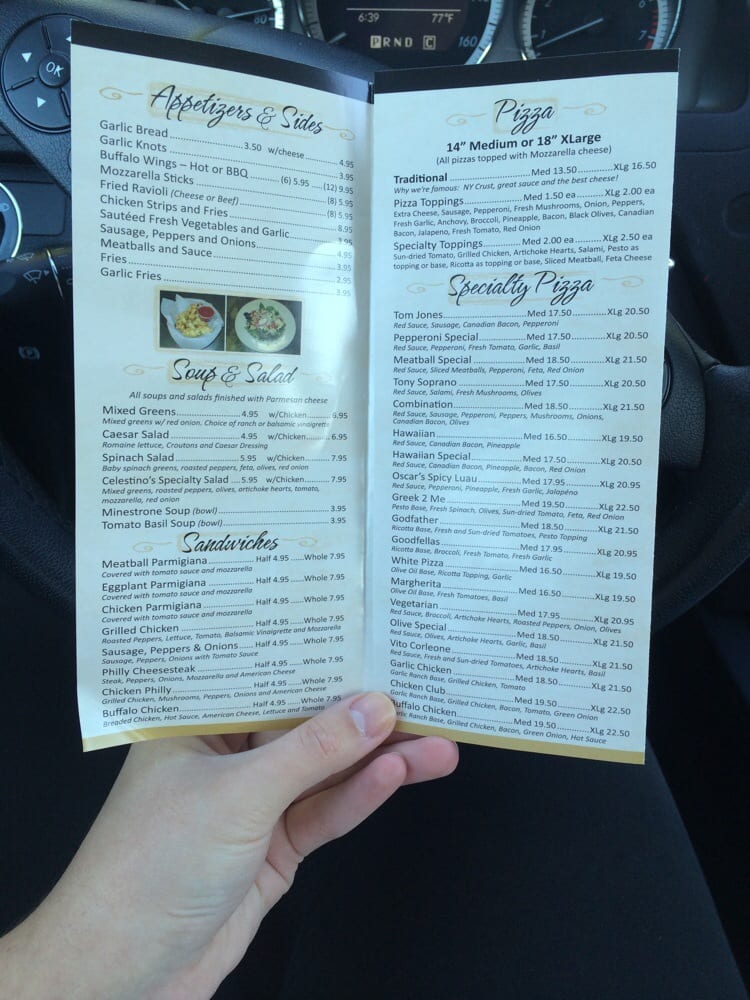 6:39
77°F
P R N D C
80
160
1
6
7
OK
Appetizers & Sides
Garlic Bread 3.50 w/cheese 4.95
Garlic Knots 3.95
Buffalo Wings – Hot or BBQ (6) 5.95 (12) 9.95
Mozzarella Sticks (8) 5.95
Fried Ravioli (Cheese or Beef) (8) 5.95
Chicken Strips and Fries 8.95
Sautéed Fresh Vegetables and Garlic 3.95
Sausage, Peppers and Onions 4.95
Meatballs and Sauce 3.95
Fries 2.95
Garlic Fries 3.95
Soup & Salad
All soups and salads finished with Parmesan cheese
Mixed Greens 4.95 w/Chicken 6.95
Mixed greens w/ red onion. Choice of ranch or balsamic vinaigrette
Caesar Salad 4.95 w/Chicken 6.95
Romaine lettuce, Croutons and Caesar Dressing
Spinach Salad 5.95 w/Chicken 7.95
Baby spinach greens, roasted peppers, feta, olives, red onion
Celestino's Specialty Salad 5.95 w/Chicken 7.95
Mixed greens, roasted peppers, olives, artichoke hearts, tomato,
mozzarella, red onion
Minestrone Soup (bowl) 3.95
Tomato Basil Soup (bowl) 3.95
Sandwiches
Meatball Parmigiana Half 4.95 Whole 7.95
Covered with tomato sauce and mozzarella
Eggplant Parmigiana Half 4.95 Whole 7.95
Covered with tomato sauce and mozzarella
Chicken Parmigiana Half 4.95 Whole 7.95
Covered with tomato sauce and mozzarella
Grilled Chicken Half 4.95 Whole 7.95
Roasted Peppers, Lettuce, Tomato, Balsamic Vinaigrette and Mozzarella
Sausage, Peppers & Onions Half 4.95 Whole 7.95
Sausage, Peppers, Onions with Tomato Sauce
Philly Cheesesteak Half 4.95 Whole 7.95
Steak, Peppers, Onions, Mozzarella and American Cheese
Chicken Philly Half 4.95 Whole 7.95
Grilled Chicken, Mushrooms, Peppers, Onions and American Cheese
Buffalo Chicken Half 4.95 Whole 7.95
Breaded Chicken, Hot Sauce, American Cheese, Lettuce and Tomato
Pizza
14” Medium or 18” XLarge
(All pizzas topped with Mozzarella cheese)
Traditional Med 13.50 XLg 16.50
Why we're famous: NY Crust, great sauce and the best cheese!
Pizza Toppings Med 1.50 ea XLg 2.00 ea
Extra Cheese, Sausage, Pepperoni, Fresh Mushrooms, Onion, Peppers,
Fresh Garlic, Anchovy, Broccoli, Pineapple, Bacon, Black Olives, Canadian
Bacon, Jalapeno, Fresh Tomato, Red Onion
Specialty Toppings Med 2.00 ea XLg 2.50 ea
Sun-dried Tomato, Grilled Chicken, Artichoke Hearts, Salami, Pesto as
topping or base, Ricotta as topping or base, Sliced Meatball, Feta Cheese
Specialty Pizza
Tom Jones Med 17.50 XLg 20.50
Red Sauce, Sausage, Canadian Bacon, Pepperoni
Pepperoni Special Med 17.50 XLg 20.50
Red Sauce, Pepperoni, Fresh Tomato, Garlic, Basil
Meatball Special Med 18.50 XLg 21.50
Red Sauce, Sliced Meatballs, Pepperoni, Feta, Red Onion
Tony Soprano Med 17.50 XLg 20.50
Red Sauce, Salami, Fresh Mushrooms, Olives
Combination Med 18.50 XLg 21.50
Red Sauce, Sausage, Pepperoni, Peppers, Mushrooms, Onions,
Canadian Bacon, Olives
Hawaiian Med 16.50 XLg 19.50
Red Sauce, Canadian Bacon, Pineapple
Hawaiian Special Med 17.50 XLg 20.50
Red Sauce, Canadian Bacon, Pineapple, Bacon, Red Onion
Oscar's Spicy Luau Med 17.95 XLg 20.95
Red Sauce, Pepperoni, Pineapple, Fresh Garlic, Jalapéno
Greek 2 Me Med 19.50 XLg 22.50
Pesto Base, Fresh Spinach, Olives, Sun-dried Tomato, Feta, Red Onion
Godfather Med 18.50 XLg 21.50
Ricotta Base, Fresh and Sun-dried Tomatoes, Pesto Topping
Goodfellas Med 17.95 XLg 20.95
Ricotta Base, Broccoli, Fresh Tomato, Fresh Garlic
White Pizza Med 16.50 XLg 19.50
Olive Oil Base, Ricotta Topping, Garlic
Margherita Med 16.50 XLg 19.50
Olive Oil Base, Fresh Tomatoes, Basil
Vegetarian Med 17.95 XLg 20.95
Red Sauce, Broccoli, Artichoke Hearts, Roasted Peppers, Onion, Olives
Olive Special Med 18.50 XLg 21.50
Red Sauce, Olives, Artichoke Hearts, Garlic, Basil
Vito Corleone Med 18.50 XLg 21.50
Red Sauce, Fresh and Sun-dried Tomatoes, Artichoke Hearts, Basil
Garlic Chicken Med 18.50 XLg 21.50
Garlic Ranch Base, Grilled Chicken, Tomato
Chicken Club Med 19.50 XLg 22.50
Garlic Ranch Base, Grilled Chicken, Bacon, Tomato, Green Onion
Buffalo Chicken Med 19.50 XLg 22.50
Garlic Ranch Base, Grilled Chicken, Bacon, Green Onion, Hot Sauce